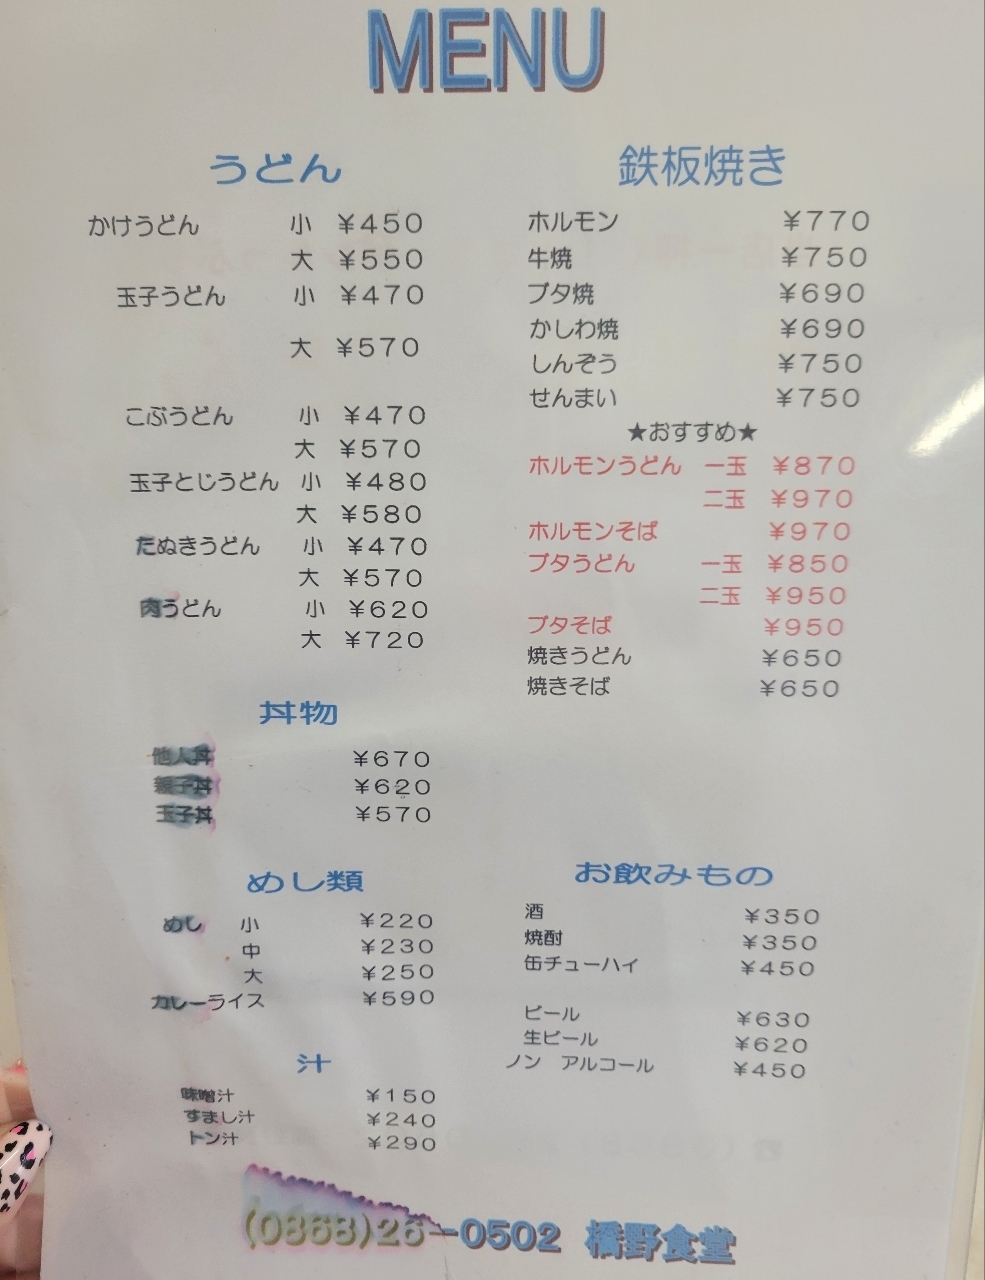 MENU
うどん
かけうどん 小 ¥450
大 ¥550
玉子うどん 小 ¥470
大 ¥570
こぶうどん 小 ¥470
大 ¥570
玉子とじうどん 小 ¥480
大 ¥580
たぬきうどん 小 ¥470
大 ¥570
肉うどん 小 ¥620
大 ¥720
丼物
他人丼 ¥670
親子丼 ¥620
玉子丼 ¥570
めし類
めし 小 ¥220
中 ¥230
大 ¥250
カレーライス ¥590
汁
味噌汁 ¥150
すまし汁 ¥240
トン汁 ¥290
鉄板焼き
ホルモン ¥770
牛焼 ¥750
ブタ焼 ¥690
かしわ焼 ¥690
しんぞう ¥750
せんまい ¥750
★おすすめ★
ホルモンうどん 一玉 ¥870
二玉 ¥970
ホルモンそば ¥970
ブタうどん 一玉 ¥850
二玉 ¥950
ブタそば ¥950
焼きうどん ¥650
焼きそば ¥650
お飲みもの
酒 ¥350
焼酎 ¥350
缶チューハイ ¥450
ビール ¥630
生ビール ¥620
ノン アルコール ¥450
(0868)26-0502 橋野食堂